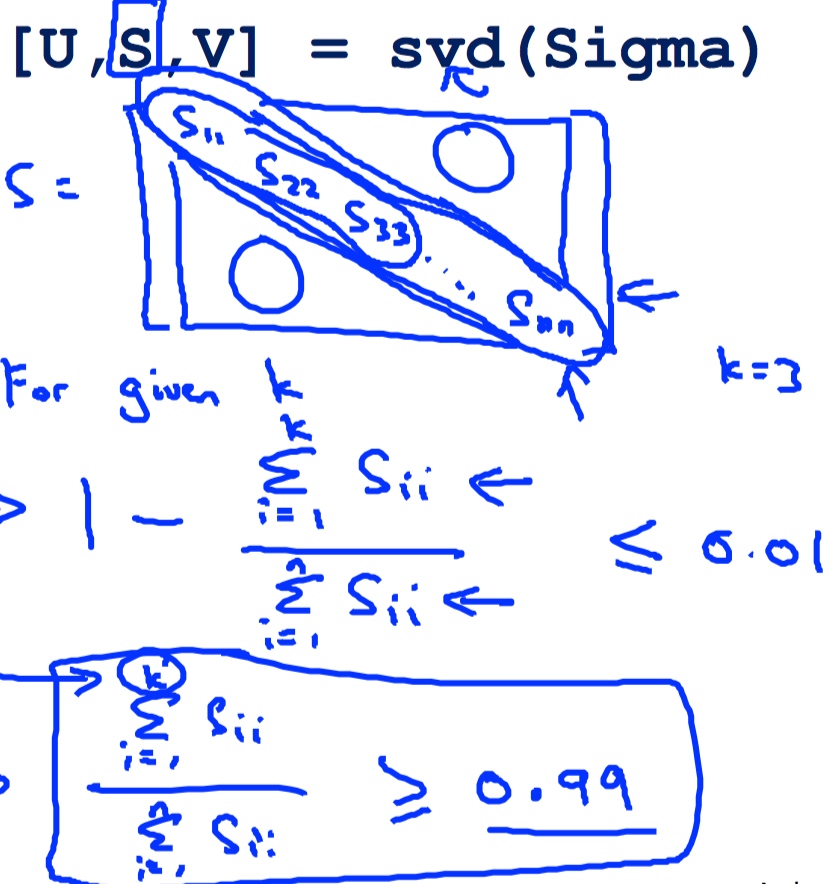 [U,S,V] = svd(Sigma)
S =
S₁₁
S₂₂
S₃₃
....
Sₙₙ
For given k
k=3
1 - (∑ᵢ₌₁ᵏ Sᵢᵢ) / (∑ᵢ₌₁ⁿ Sᵢᵢ) ≤ 0.01
(∑ᵢ₌₁ᵏ Sᵢᵢ) / (∑ᵢ₌₁ⁿ Sᵢᵢ) ≥ 0.99